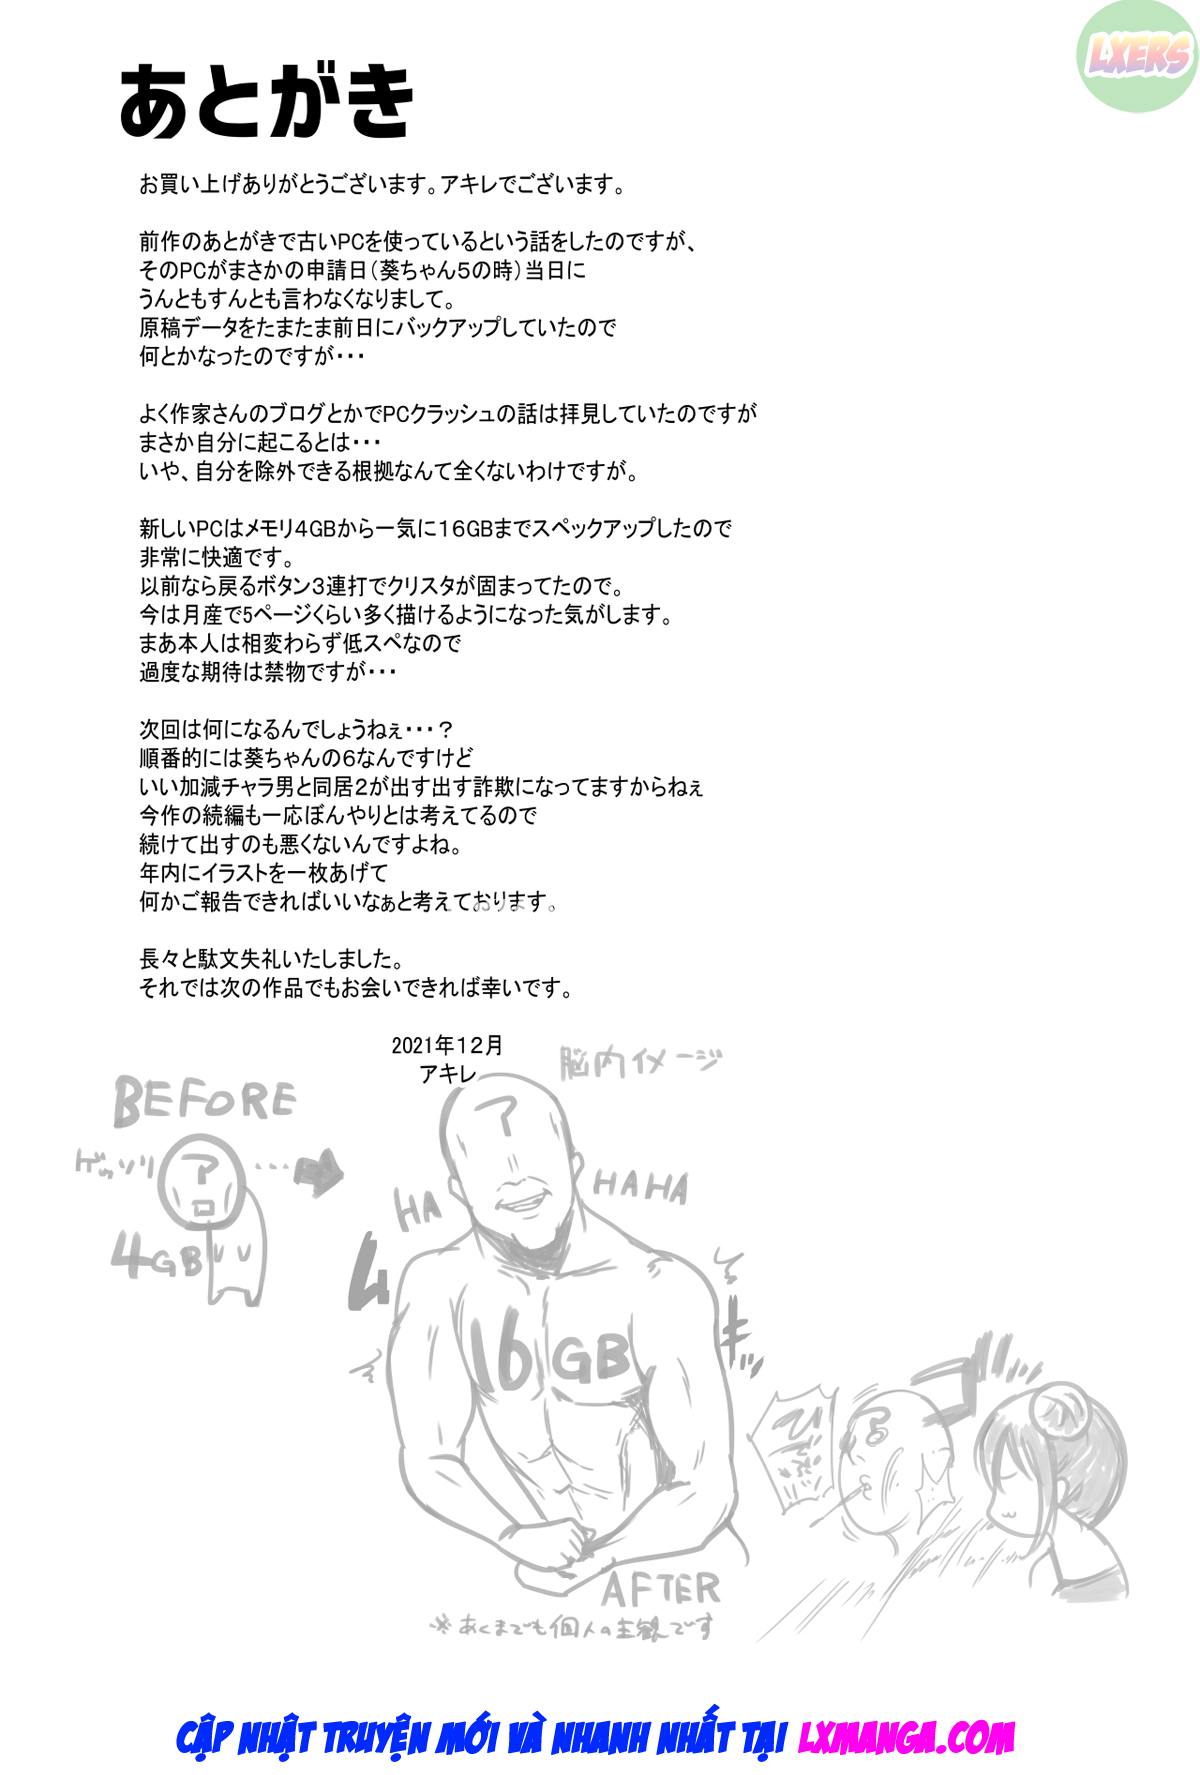 LXERS
あとがき
お買い上げありがとうございます。アキレでございます。
前作のあとがきで古いPCを使っているという話をしたのですが、
そのPCがまさかの申請日（葵ちゃん５の時）当日に
うんともすんとも言わなくなりまして。
原稿データをたまたま前日にバックアップしていたので
何とかなったのですが・・・
よく作家さんのブログとかでPCクラッシュの話は拝見していたのですが
まさか自分に起こるとは・・・
いや、自分を除外できる根拠なんて全くないわけですが。
新しいPCはメモリ４GBから一気に１６GBまでスペックアップしたので
非常に快適です。
以前なら戻るボタン３連打でクリスタが固まってたので。
今は月産で5ページくらい多く描けるようになった気がします。
まあ本人は相変わらず低スペなので
過度な期待は禁物ですが・・・
次回は何になるんでしょうねぇ・・・？
順番的には葵ちゃんの６なんですけど
いい加減チャラ男と同居２が出す出す詐欺になってますからねぇ
今作の続編も一応ぼんやりとは考えてるので
続けて出すのも悪くないんですよね。
年内にイラストを一枚あげて
何かご報告できればいいなぁと考えております。
長々と駄文失礼いたしました。
それでは次の作品でもお会いできれば幸いです。
2021年１２月
アキレ
脳内イメージ
BEFORE
ア
ゲッソリ
ア
ロ
・・・
HA
HAHA
4GB
ム
キッ
16GB
ア
AFTER
※あくまでも個人の主観です
CẬP NHẬT TRUYỆN MỚI VÀ NHANH NHẤT TẠI LXMANGA.COM